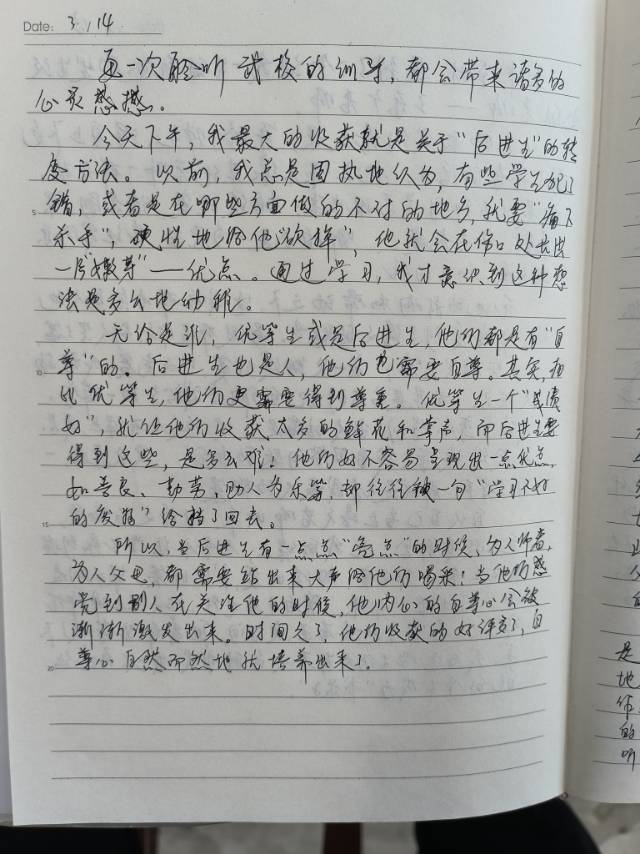 Date: 3 / 14
每一次聆听武校的训导，都会带来诸多的
心灵感撼。
今天下午，我最大的收获就是关于“后进生”的转
度方法。以前，我总是固执地认为，有些学生犯了
错，或者是在哪些方面做的不对的地方，我要“痛下
杀手”，硬性地给他“砍掉”，他就会在伤口处长出
一片“嫩芽”——优点。通过学习，我才意识到这种想
法是多么地幼稚。
无论是谁，优等生或是后进生，他们都是有“自
10 尊”的。后进生也是人，他们也需要自尊。其实，相
比优等生，他们更需要得到尊重。优等生一个“成绩
好”，就让他们收获太多的鲜花和掌声，而后进生要
得到这些，是多么难！他们好不容易呈现出一点优点，
如善良、勤劳、助人为乐等，却往往被一句“学习不好
15 的废物”给挡了回去。
所以，当后进生有一点点“亮点”的时候，为人师者，
为人父母，都需要站出来大声给他们喝采！当他们感
觉到别人在关注他的时候，他内心的自尊心会被
渐渐激发出来。时间久了，他们收获的好评多了，自
20 尊心自然而然地就培养出来了。
是
地
作
的
听